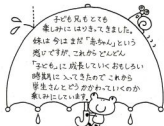 子ども兄もとても
楽しみに はりきってきました。
妹は今はまだ「赤ちゃん」という
感じですが、これから どんどん
「子ども」に 成長していく おもしろい
時期に 入ってきたので これから
学生さんと どうかかわっていくのか
楽しみにしています。